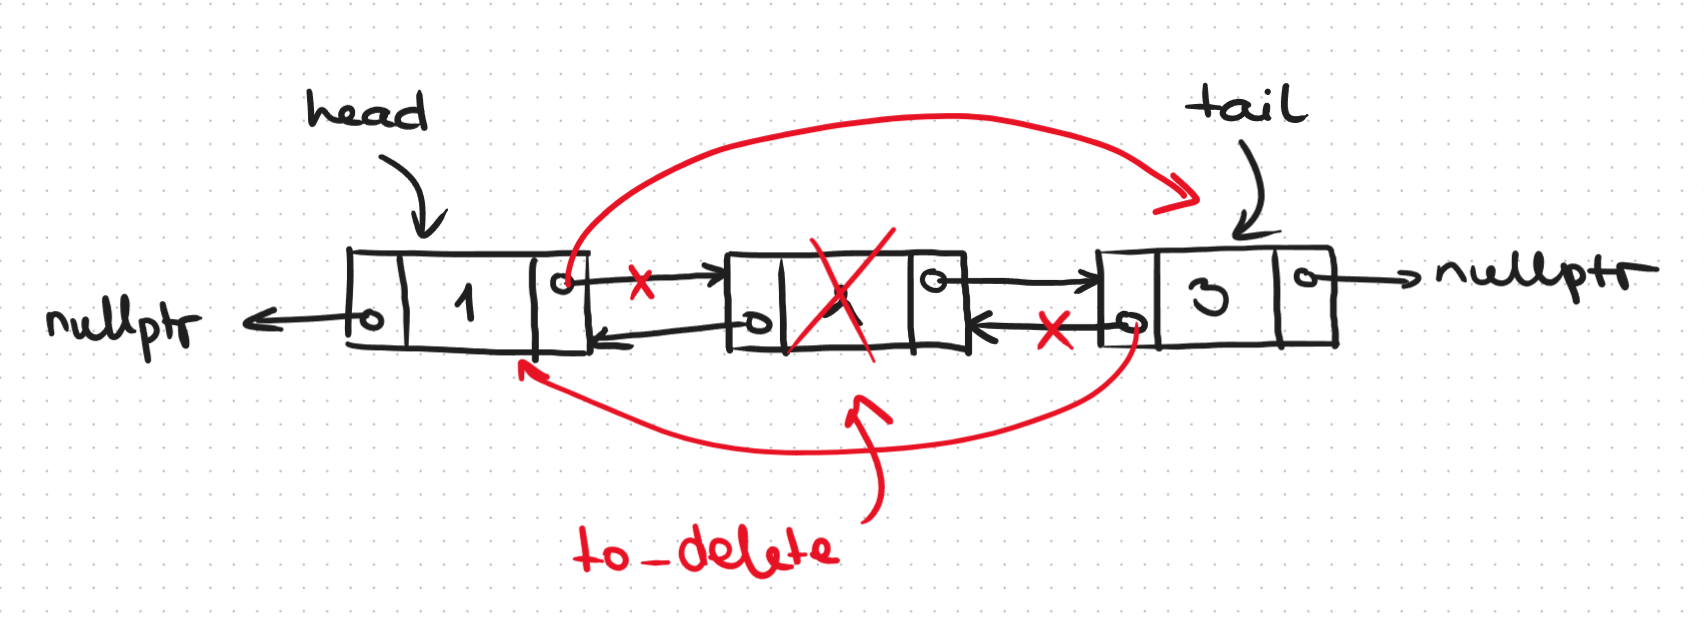 head
tail
nullptr
1
3
nullptr
to_delete